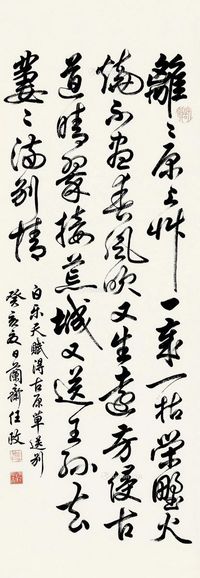 離〻原上艸一歲一枯榮野火
燒不盡春風吹又生遠芳侵古
道晴翠接荒城又送王孫去
萋〻滿別情
白乐天賦得古原草送別
癸亥夏日蘭齋任政